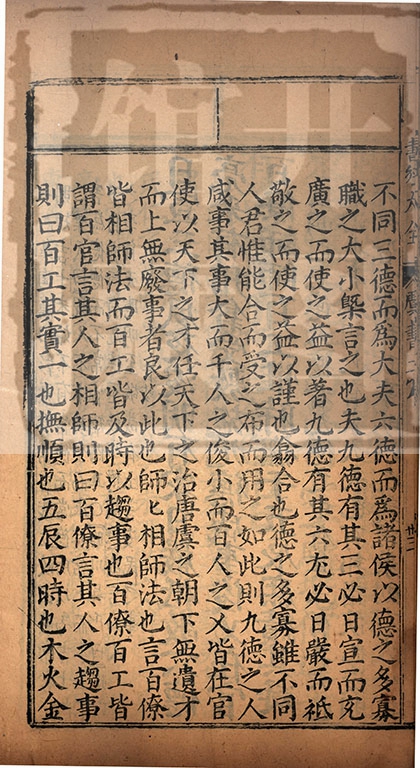 不同三德而為大夫六德而爲諸侯以德之多寡
職之大小槩言之也夫九德有其三必日宣而充
廣之而使之益以著九德有其六尤必日嚴而祗
敬之而使之益以謹也翕合也德之多寡雖不同
人君惟能合而受之布而用之如此則九德之人
咸事其事大而千人之俊小而百人之乂皆在官
使以天下之才任天下之治唐虞之朝下無遺才
而上無廢事者良以此也師〻相師法也言百僚
皆相師法而百工皆及時以趨事也百僚百工皆
謂百官言其人之相師則曰百僚言其人之趨事
則曰百工其實一也撫順也五辰四時也木火金